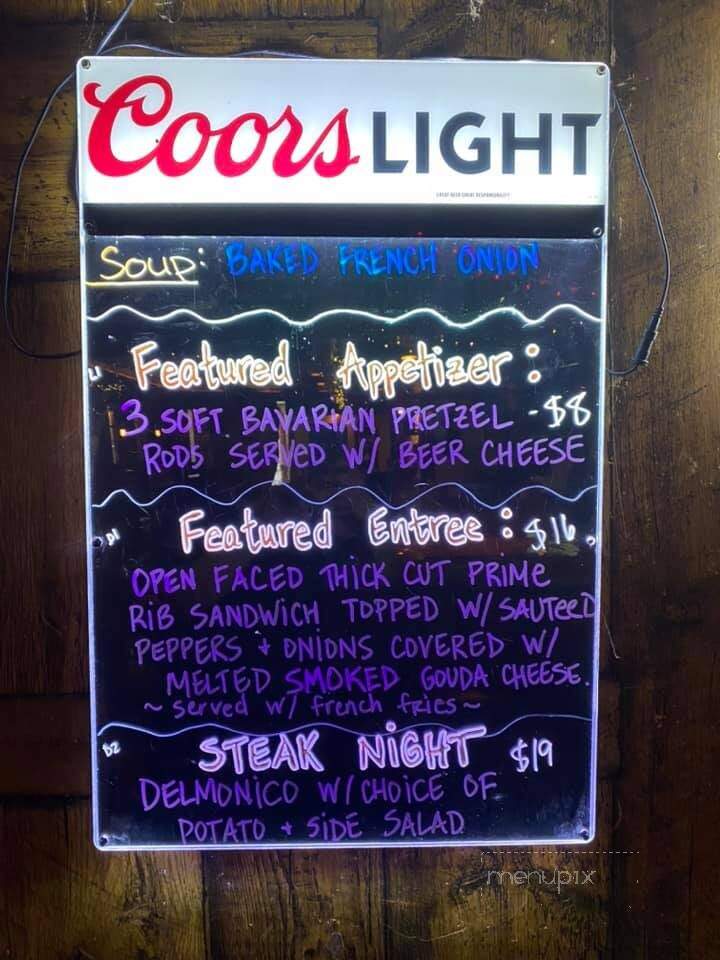 Coors LIGHT
GREAT BEER GREAT RESPONSIBILITY
Soup: BAKED FRENCH ONION
Featured Appetizer:
3 SOFT BAVARIAN PRETZEL - $8
RODS SERVED W/ BEER CHEESE
Featured Entree: $16
OPEN FACED THICK CUT PRIME
RIB SANDWICH TOPPED W/ SAUTEED
PEPPERS + ONIONS COVERED W/
MELTED SMOKED GOUDA CHEESE.
~ served w/ french fries ~
STEAK NIGHT $19
DELMONICO W/ CHOICE OF
POTATO + SIDE SALAD
menupix